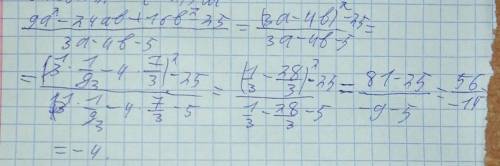 (9a² - 24ab + 16b² - 25)/(3a - 4b - 5) = ((3a - 4b)² - 25)/(3a - 4b - 5) =
= ((3 · 1/9 - 4 · 7/3)² - 25)/(3 · 1/9 - 4 · 7/3 - 5) = ((1/3 - 28/3)² - 25)/(1/3 - 28/3 - 5) = (81 - 25)/(-9 - 5) = 56/-14
= -4.